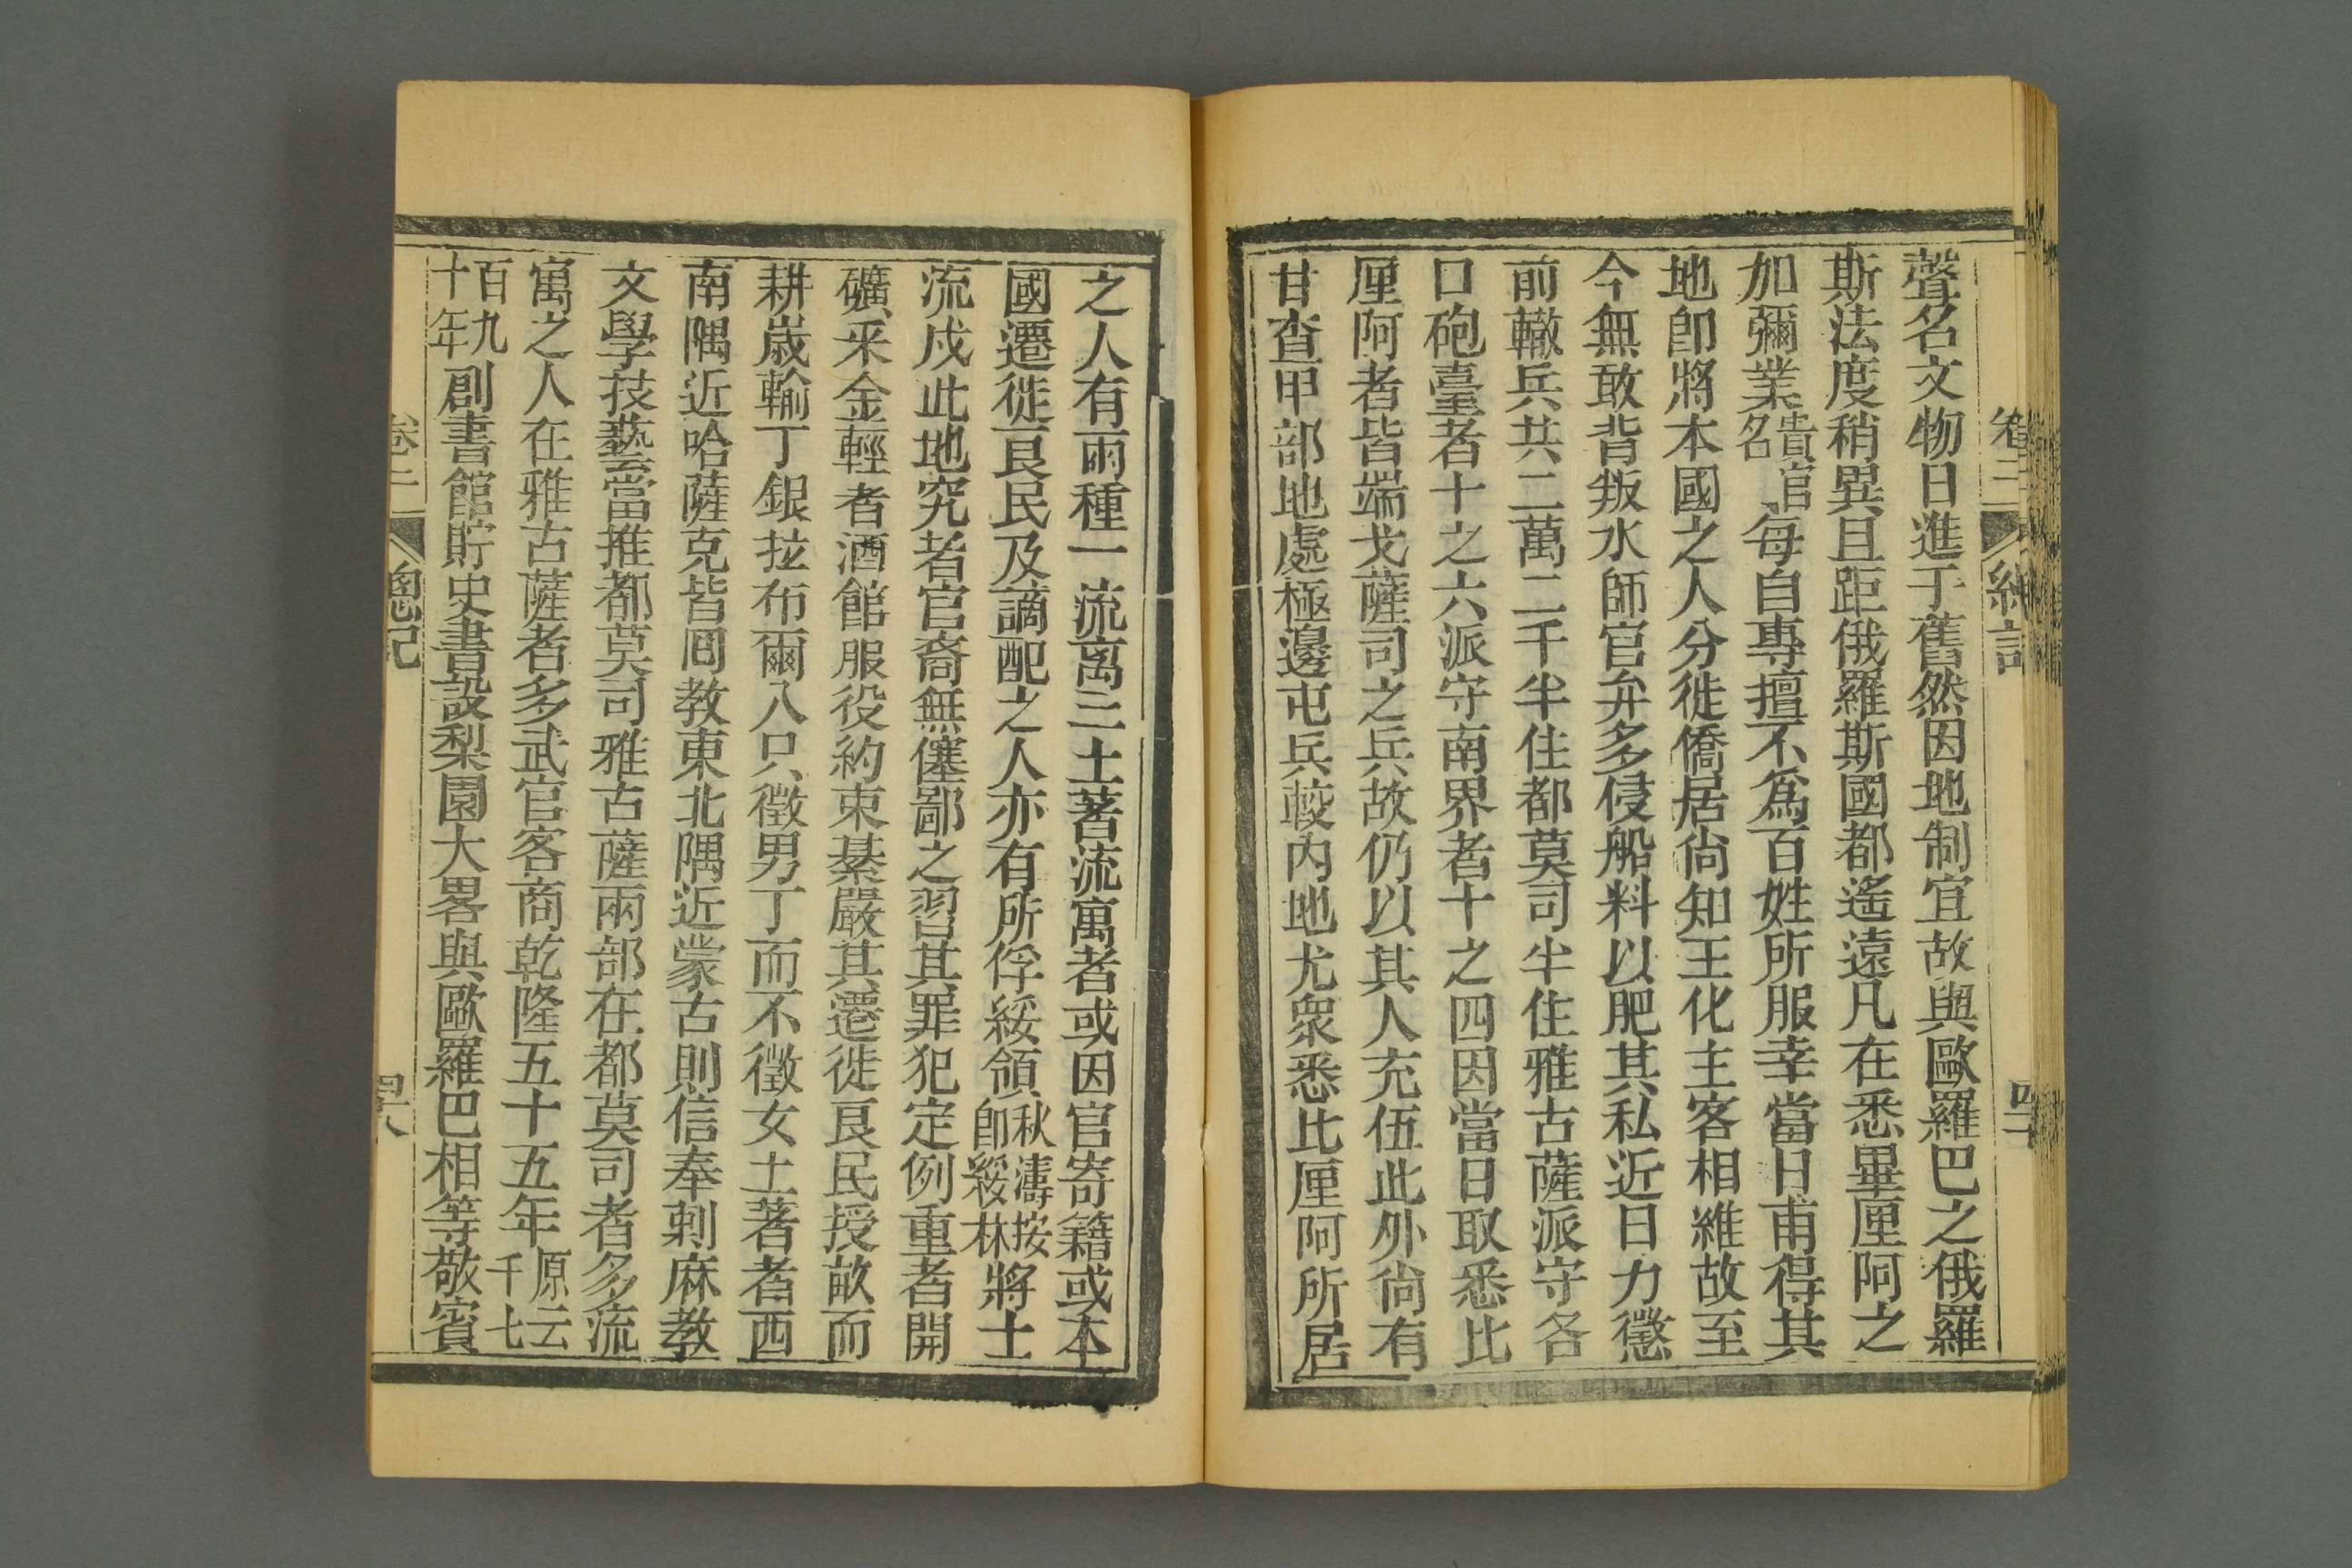 聲名文物日進于舊然因地制宜故與歐羅巴之俄羅
斯法度稍異且距俄羅斯國都遙遠凡在悉畢厘阿之
加彌業貴官名每自專擅不爲百姓所服幸當日甫得其
地卽將本國之人分徙僑居尙知王化主客相維故至
今無敢背叛水師官弁多侵船料以肥其私近日力懲
前轍兵共二萬二千半住都莫司半住雅古薩派守各
口砲臺者十之六派守南界者十之四因當日取悉比
厘阿者皆端戈薩司之兵故仍以其人充伍此外尙有
甘查甲部地處極邊屯兵較內地尤衆悉比厘阿所居
之人有兩種一流寓二土著流寓者或因官寄籍或本
國遷徙良民及謫配之人亦有所俘綏領秋濤按卽綏林將士
流戍此地究者官裔無僿鄙之習其罪犯定例重者開
礦采金輕者酒館服役約束綦嚴其遷徙良民授畝而
耕歲輸丁銀拉布爾八只徵男丁而不徵女土著者西
南隅近哈薩克皆回教東北隅近蒙古則信奉剌麻教
文學技藝當推都莫司雅古薩兩部在都莫司者多流
寓之人在雅古薩者多武官客商乾隆五十五年原云千七
百九十年創書館貯史書設梨園大畧與歐羅巴相等敬賓
卷二 總記 四十八